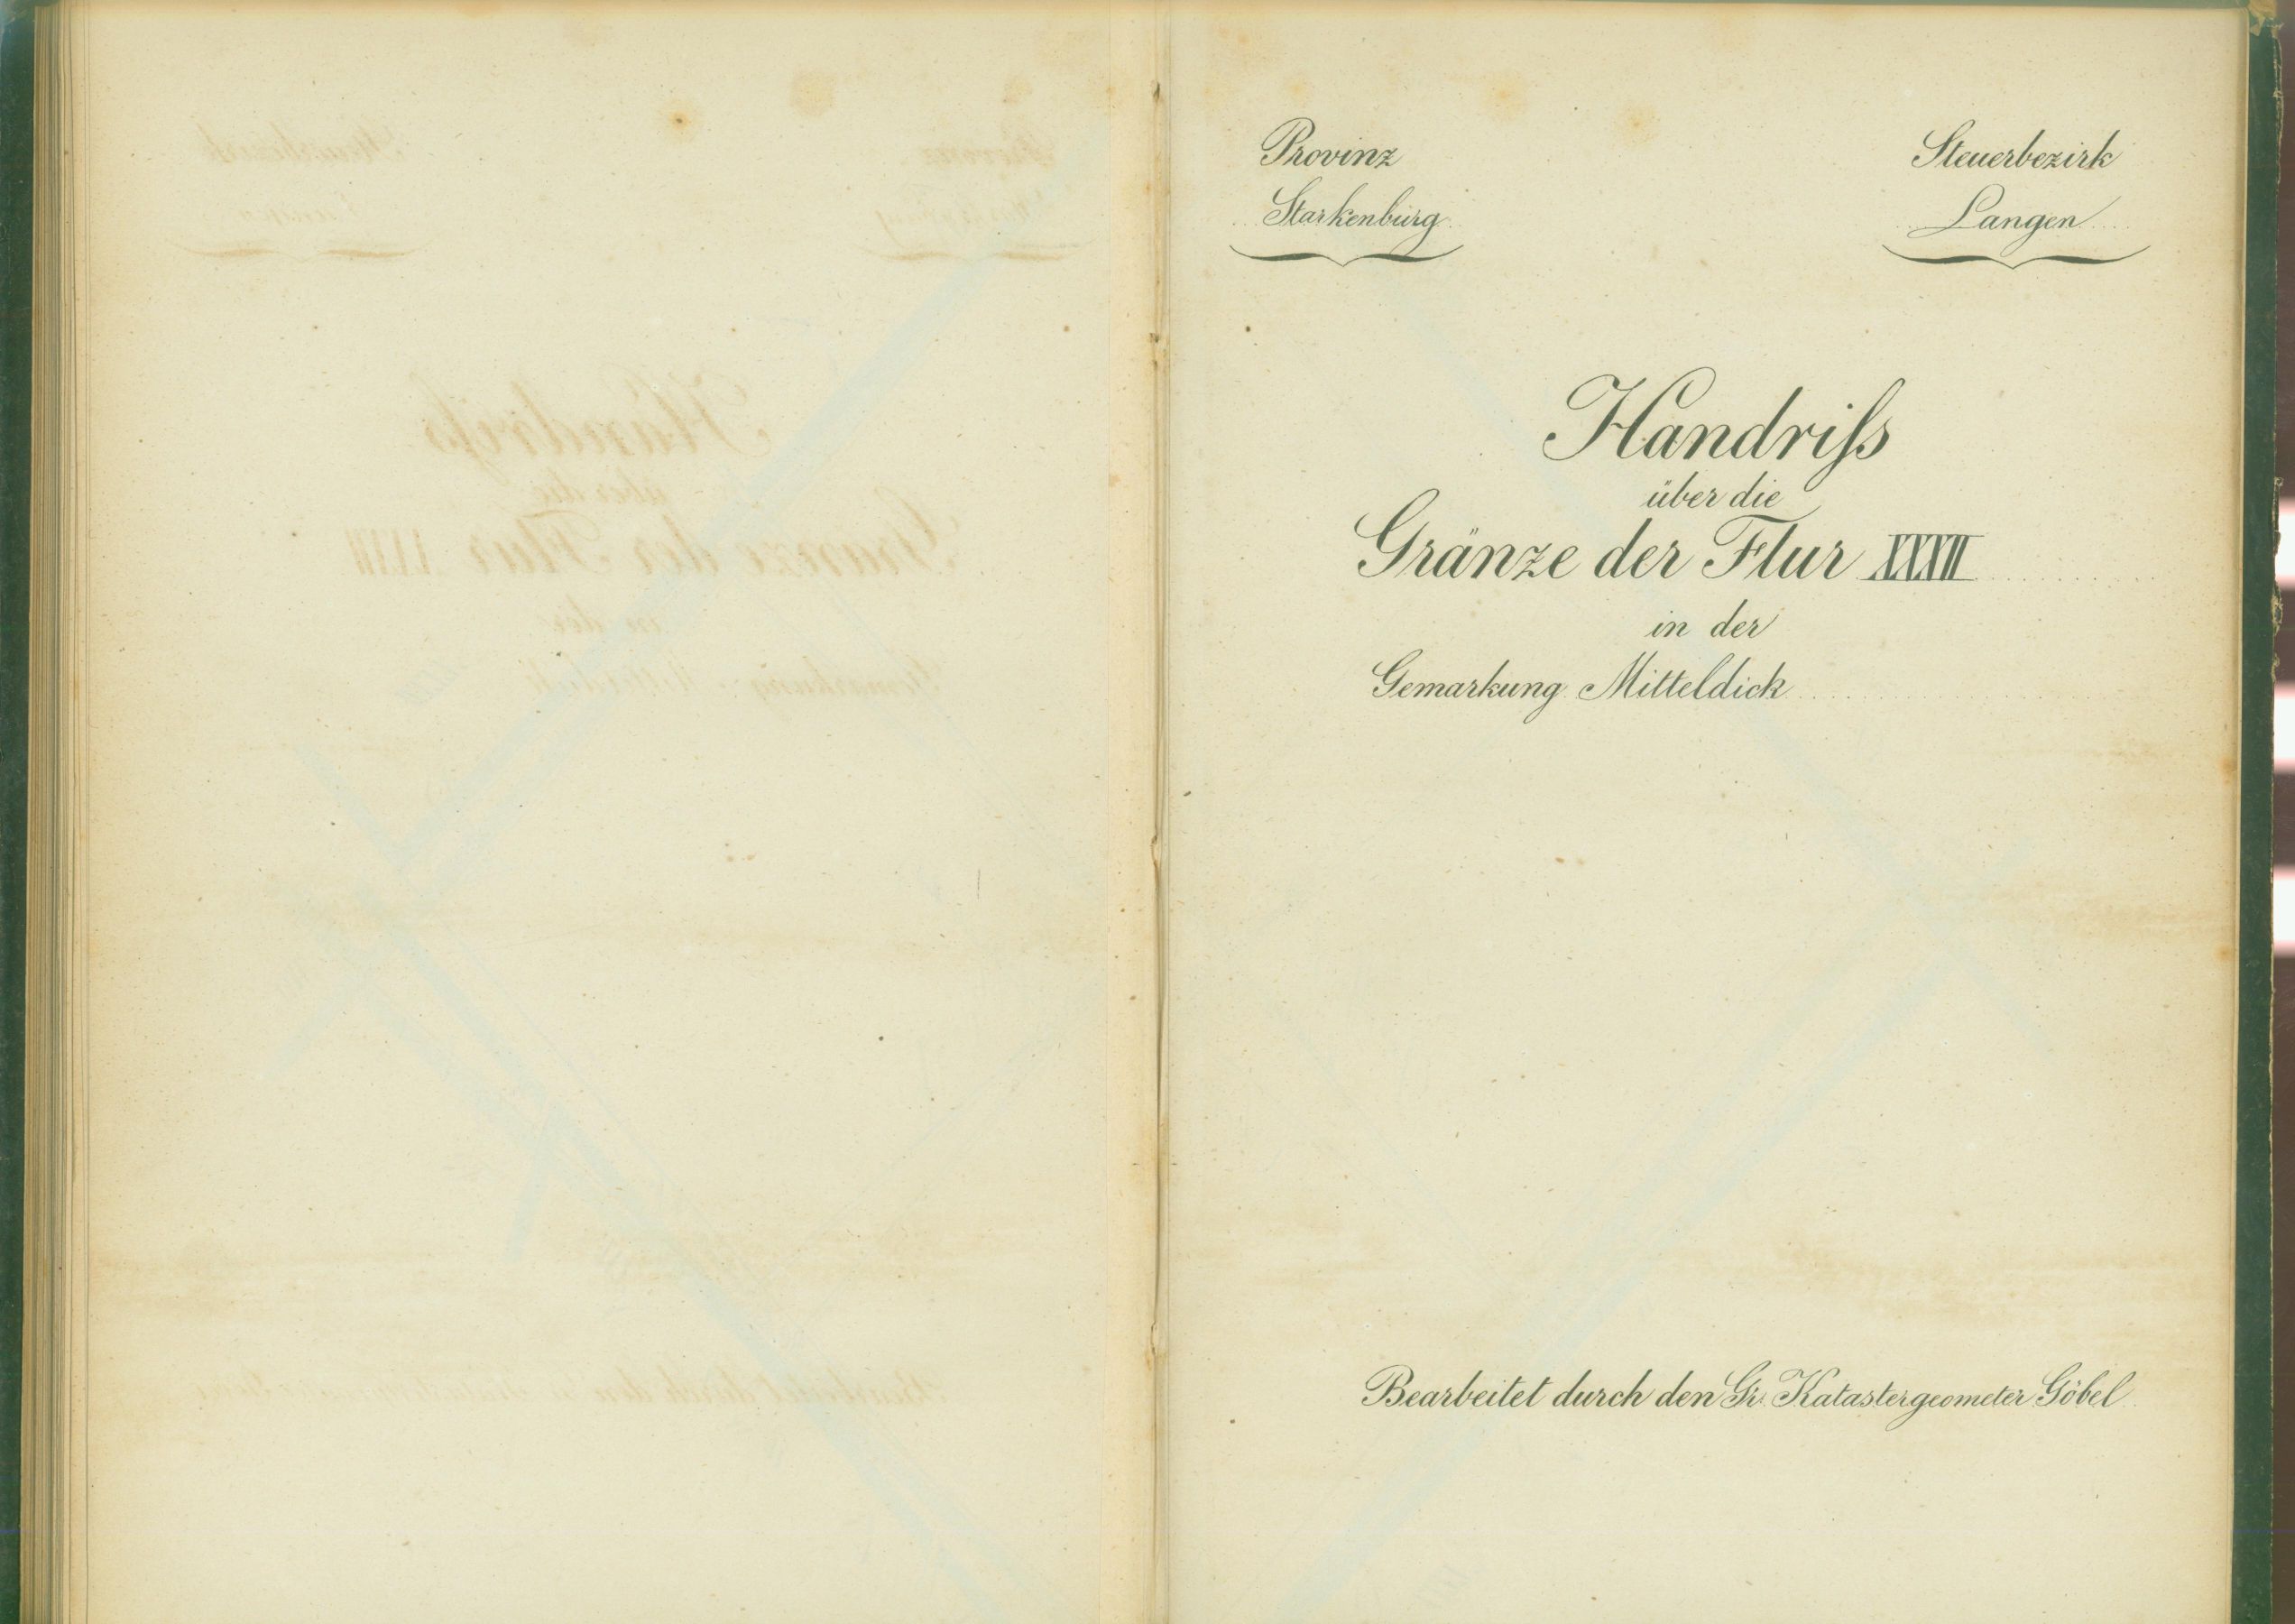 Provinz
Starkenburg
Steuerbezirk
Langen
Handriſs
über die
Gränze der Flur XXXII
in der
Gemarkung Mitteldick
Bearbeitet durch den Gr. Katastergeometer Göbel